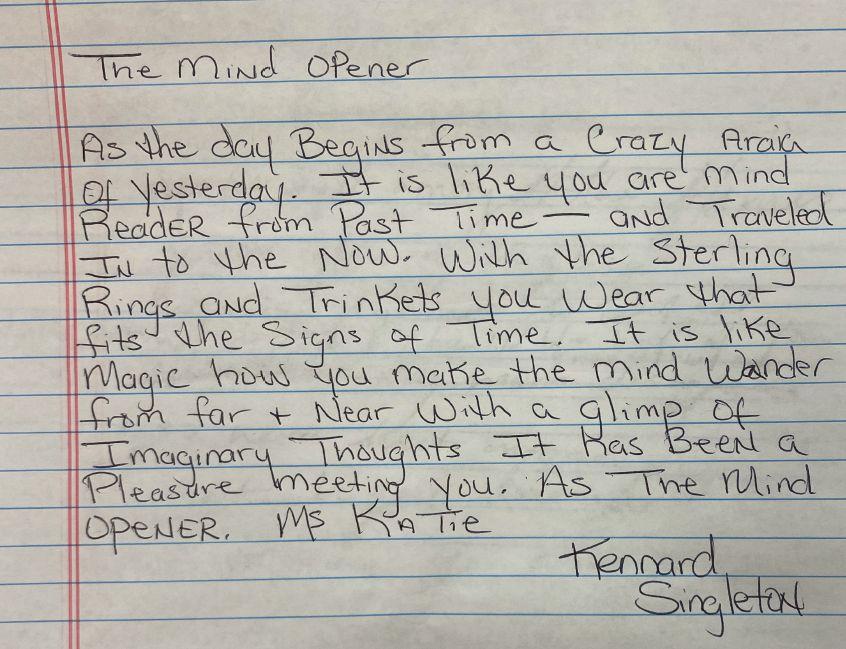 The Mind Opener
As the day Begins from a Crazy Araia
Of yesterday. It is like you are mind
Reader from Past Time — and Traveled
In to the Now. With the Sterling
Rings and Trinkets you Wear that
fits the Signs of Time. It is like
Magic how you make the mind Wander
from far + Near With a glimp of
Imaginary Thoughts It has Been a
Pleasure meeting you. As The Mind
Opener. Ms KaTie
Kennard
Singleton